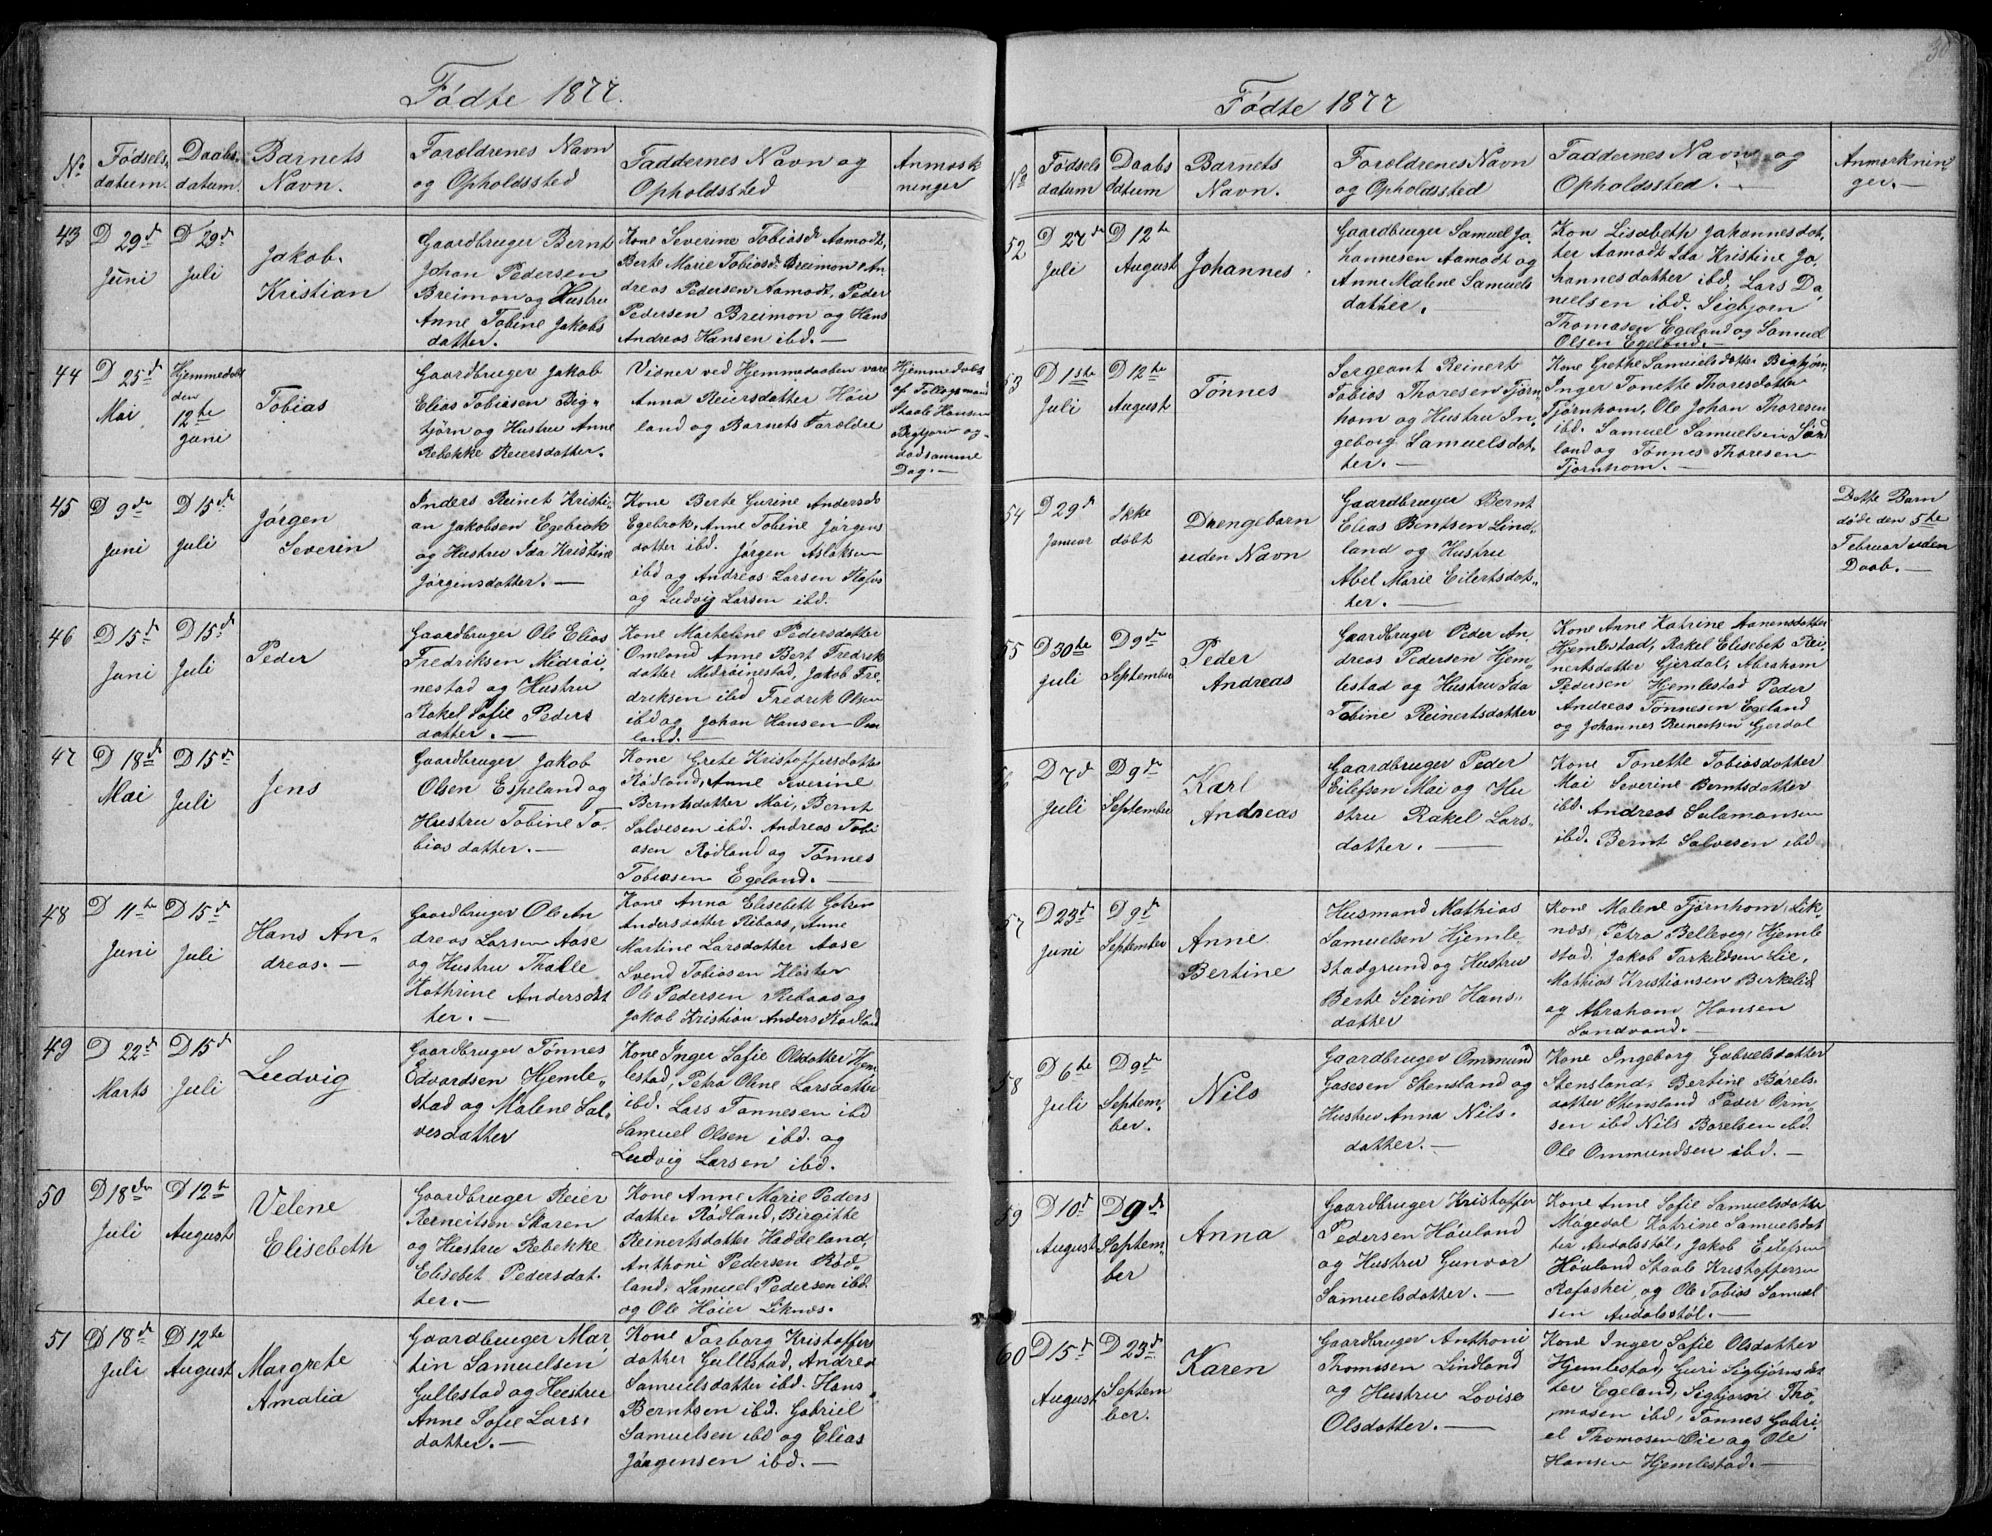 Fødte 1877.
No
Fødsels, datum.
Daabs, datum.
Barnets Navn.
Foroldrenes Navn og Opholdssted
Faddernes Navn og Opholdssted
Anmærk ninger
43
D 29d Juni
D 29d Juli
Jakob. Kristian
Gaardbruger Bernt
Johan Pedersen
Breimon og Hustru
Anne Tobine Jakobs
datter. —
Kone Severine Tobiasdt Aamodt,
Berte Marie Tobiasd. Breimon, An
dreas Pedersen Aamodt, Peder
Pedersen Breimon og Hans
Andreas Hansen ibd. —
44
D 25d Mai
Hjemmedøbt den 12te Juni
Tobias
Gaardbruger Jakob
Elias Tobiasen Big„
tjørn og Hustru Anne
Rebekke Reiersdatter.
Visner ved Hjemmedaaben vare
Anna Reiersdatter Höu
land og Barnets Foroldre
Hjemmedøbt
af
Staale Hansen
Bigtjørn og
død samme
Dag. —
45
D 9de Juni
D 15d Juli
Jørgen Severin
Inders Reinet Kristi„
an Jakobsen Egebrok
og Hustru Ida Kristine
Jørgensdatter. —
Kone Berte Gurine Andersdt
Egebrok, Anne Tobine Jørgens
datter ibd. Jørgen Aslaksen
ibd og Andreas Larsen
og Ludvig Larsen ibd.
46
D 15d Juni
D 15d Juli
Peder
Gaardbruger Ole Elias
Fredriksen Midröi„
nestad og Hustru
Rakel Sofie Peders
datter. —
Kone Martelene Pedersdatter
Omland Anne Bert Fredrik
datter Midröinestad, Jakob Fre„
driksen ibd Fredrik Olsen
ibd og Johan Hansen Om
land. —
47
D 18d Mai
D 15d Juli
Jens
Gaardbruger Jakob
Olsen Espeland og
Hustru Tobine To„
bias datter. —
Kone Grete Kristoffersdatter
Rødland, Anne Severine
Berntsdatter Mai, Bernt
Salvesen ibd. Andreas Tobi
asen Rødland og Tønnes
Tobiasen Egeland. —
48
D 11te Juni
D 15d Juli
Hans An„ dreas. —
Gaardbruger Ole An
dreas Larsen Aase
og Hustru Thalle
Kathrine Andersdt
ter. —
Kone Anna Elisebett
Andersdatter Ribaas, Anne
Martine Larsdatter Aase
Svend Tobiasen Kloster
Ole Pedersen Rebaas og
Jakob Kristian Anders Rødland
49
D 22d Marts
D 15d Juli
Ludvig
Gaardbruger Tønnes
Edvardsen Hjemle„
stad og Malene Sal„
versdatter
Kone Inger Sofie Olsdatter Hjem
lestad, Petra Olene Larsdatter
ibd. Lars Tønnesen ibd
Samuel Olsen ibd. og
Ludvig Larsen ibd.
50
D 18de Juli
D 12te August
Velene Elisebeth
Gaardbruger Reier
Rerneitsen Skaren
og Hustru Rebekke
Elisebet Pedersdat.
ter. —
Kone Anne Marie Peders
datter Rødland, Birgitte
Reinertsdatter Haddeland,
Anthoni Pedersen Rød„
land, Samuel Pedersen ibd
og Ole Höier Liknæs.
51
D 18de Juli
D 12te August
Margrete Amalia
Gaardbruger Mar„
tin Samuelsen
Gullestad og Hustru
Anne Sofie Lars„
datter. —
Kone Torborg Kristoffers
datter Gullestad, Andrea
Samuelsdatter ibd. Hans
Berntsen ibd. Gabriel
Samuelsen ibd og Elias
Jørgensen ibd. —
Fødte 1877
No
Fødsels datum
Daabs datum
Barnets Navn.
Foroldrenes Navn og Opholdssted
Faddernes Navn og Opholdssted. —
Anmærknin ger. —
52
D 27de Juli
D 12te August
Johannes.
Gaardbruger Samuel Jo„
hannesen Aamodt og
Anne Malene Samuels
datter. —
Kon Lisabeth Johannesdat„
ter Aamodt Ida Kristine Jo„
hannesdatter ibd, Lars Da„
nielsen ibd. Sigbjørn
Thomasen Egeland og Samuel
Olsen Egeland. —
53
D 1ste Juli
D 12te August
Tønnes
Sergeant Reinert
Tobias Thoresen Tjørn
hom og Hustru In„
geborg Samuelsdat„
ter. —
Kone Grethe Samuelsdatter Bigtjørn,
Inger Tonette Thoresdatter
Tjørnhom, Ole Johan Thoresen
ibd. Samuel Samuelsen Sind
land og Tønnes Thoresen
Tjørnhom. —
54
D 29d Januar
Ikke døbt
Drengebarn uden Navn
Gaardbruger Bernt
Elias Bentsen Lind„
land og Hustru
Abel Marie Eilertsdat„
ter. —
Dette Barn
døde den 5te
Februar uden
Daab. —
55
D 30te Juli
D 9de September
Peder Andreas
Gaardbruger Peder An„
dreas Pedersen Hjem„
lestad og Hustru Ida
Tobine Reinertsdatter
Kone Anne Katrine Aanensdatter
Hjemlestad, Rakel Elisebet Rei„
nertsdatter Gjerdal, Abraham
Pedersen Hjemlestad Peder
Andreas Tønnesen Egeland
og Johannes Reinertsen Gjerdal
D 7d Juli
D 9de September
Karl Andreas
Gaardbruger Peder
Eilefsen Mai og Hu
stru Rakel Lars„
datter. —
Kone Tonette Tobiasdatter
Mai Severine Berntsdatter
ibd. Andreas Salamonsen
ibd. Bernt Salvesen ibd
57
D 23d Juni
D 9de September
Anne Bertine
Husmand Mathias
Samuelsen Hjemle„
stadgrund og Hustru
Berte Serine Hans„
datter
Kone Malene Tjørnhom, Lik„
næs, Petra Bellevig, Hjemle
stad, Jakob Tarkildsen Lie,
Mathias Kristiansen Birkelid
og Abraham Hansen
Sandvand. —
58
D 6te Juli
D 9de Septem„ ber.
Nils
Gaardbruger Ommund
Gasesen Stensland og
Hustru Anna Nils„
datter. —
Kone Ingeborg Gabrielsdatter
Stensland, Bertine Börels„
datter Stensland Peder Orim„
sen ibd Nils Borelsen ibd.
Ole Ommundsen ibd. —
59
D 10d August
D 9de Septem„ ber
Anna
Gaardbruger Kristoffer
Pedersen Höuland
og Hustru Gunvor
Samuelsdatter. —
Kone Anne Sofie Samuelsdatter
Mögedal Katrine Samuelsdat
ter Audalsstöl, Jakob Eilefsen
Höuland Staale Kristoffersen
Rafoshei og Ole Tobias Samuel
sen Audalsstöl. —
60
D 15d August
D 23d Septem ber.
Karen
Gaardbruger Anthoni
Thomasen Lindland
og Hustru Lovise
Olsdatter. —
Kone Inger Sofie Olsdatter
Hjemlestad, Guri Sigbjørnsdat
ter Egeland, Sigbjørn Tho„
masen ibd, Tønnes Gabri„
el Thomasen Öie og Ole
Hansen Hjemlestad. —